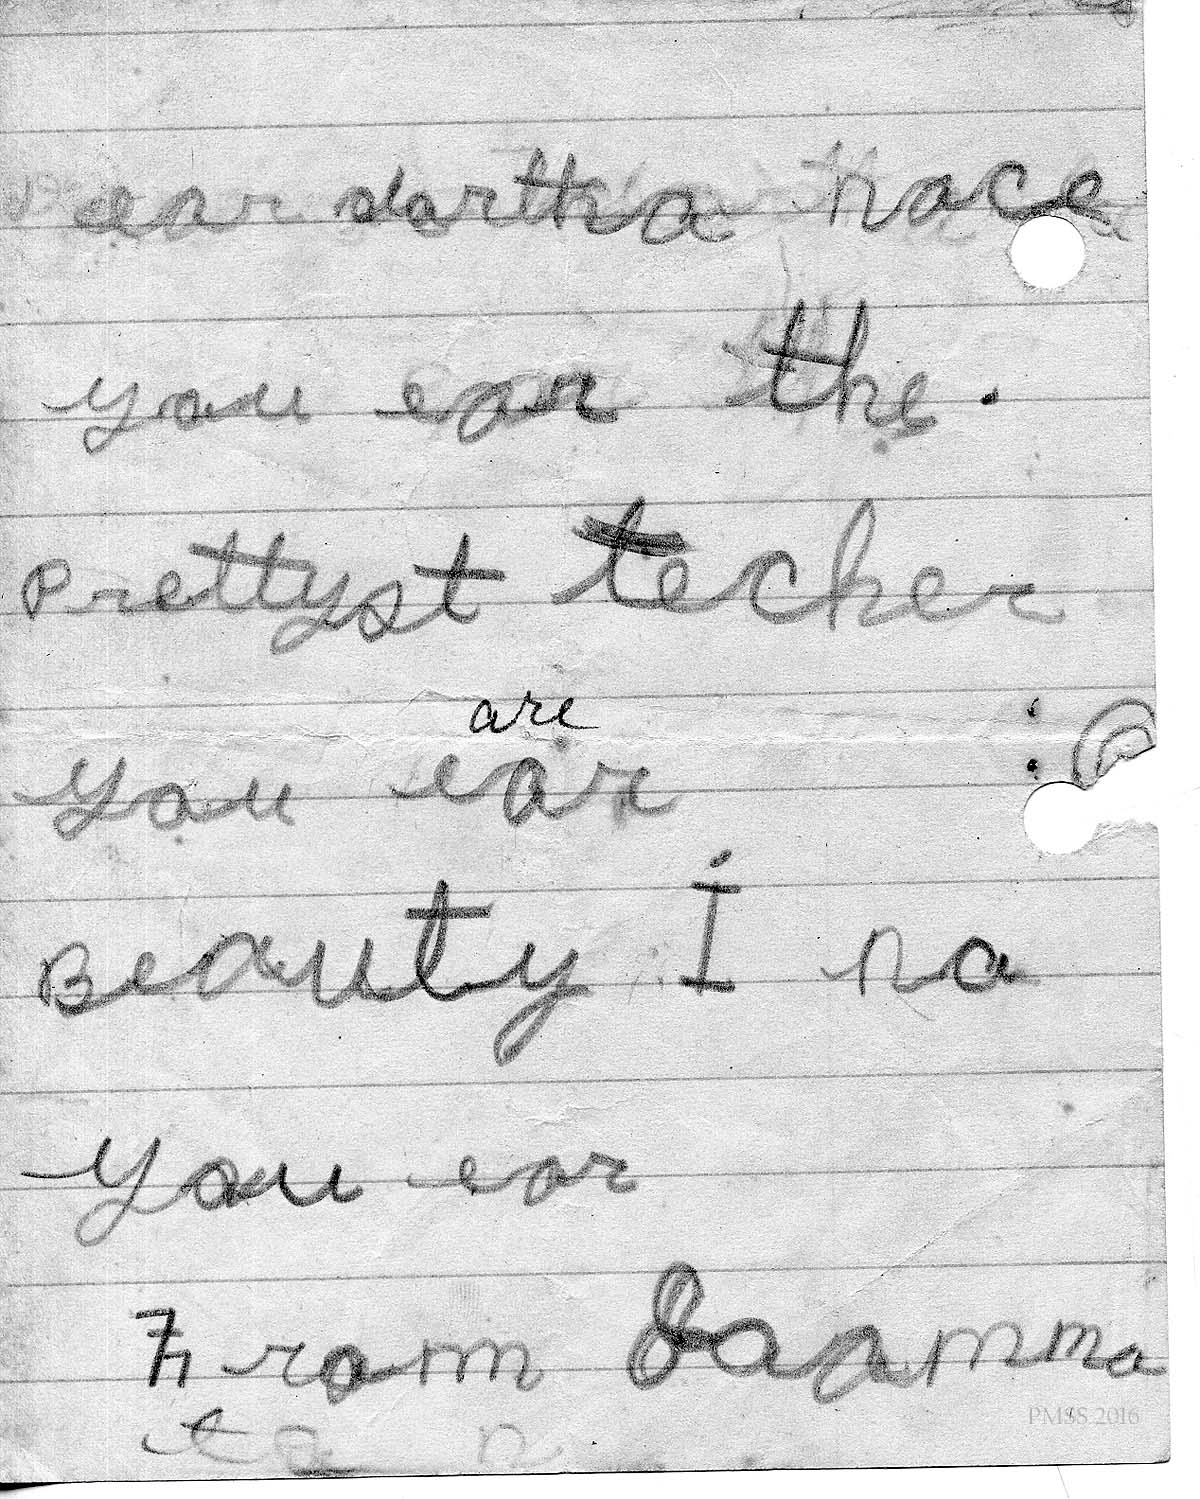 ear dortha nace
you ear the.
prettyst techer
are
you ear
Beauty I na
you ear
From
to
PMSS 2016